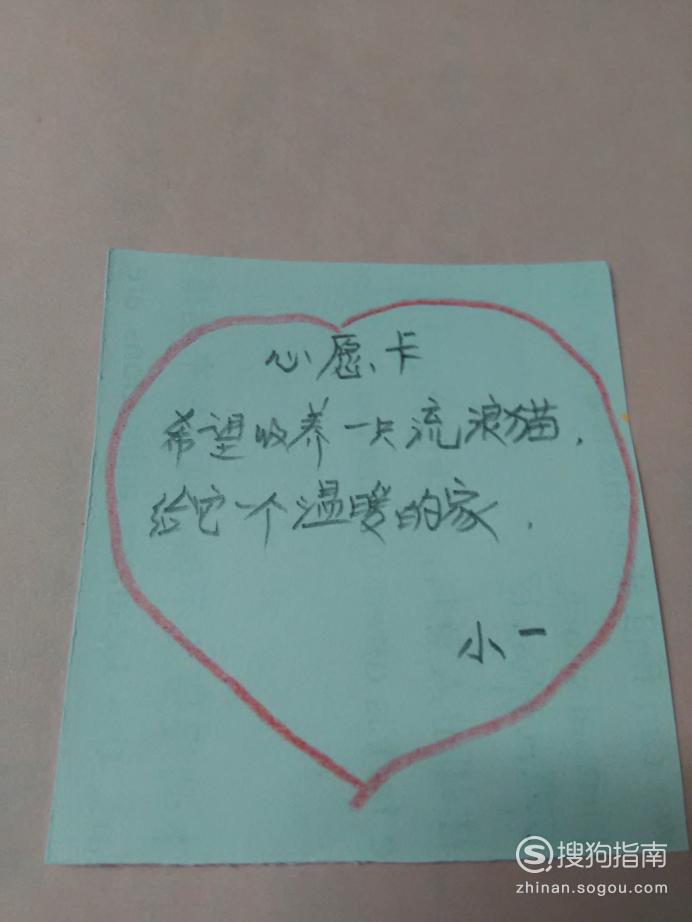 心愿卡
希望收养一只流浪猫.
给它一个温暖的家.
小一
搜狗指南
zhinan.sogou.com